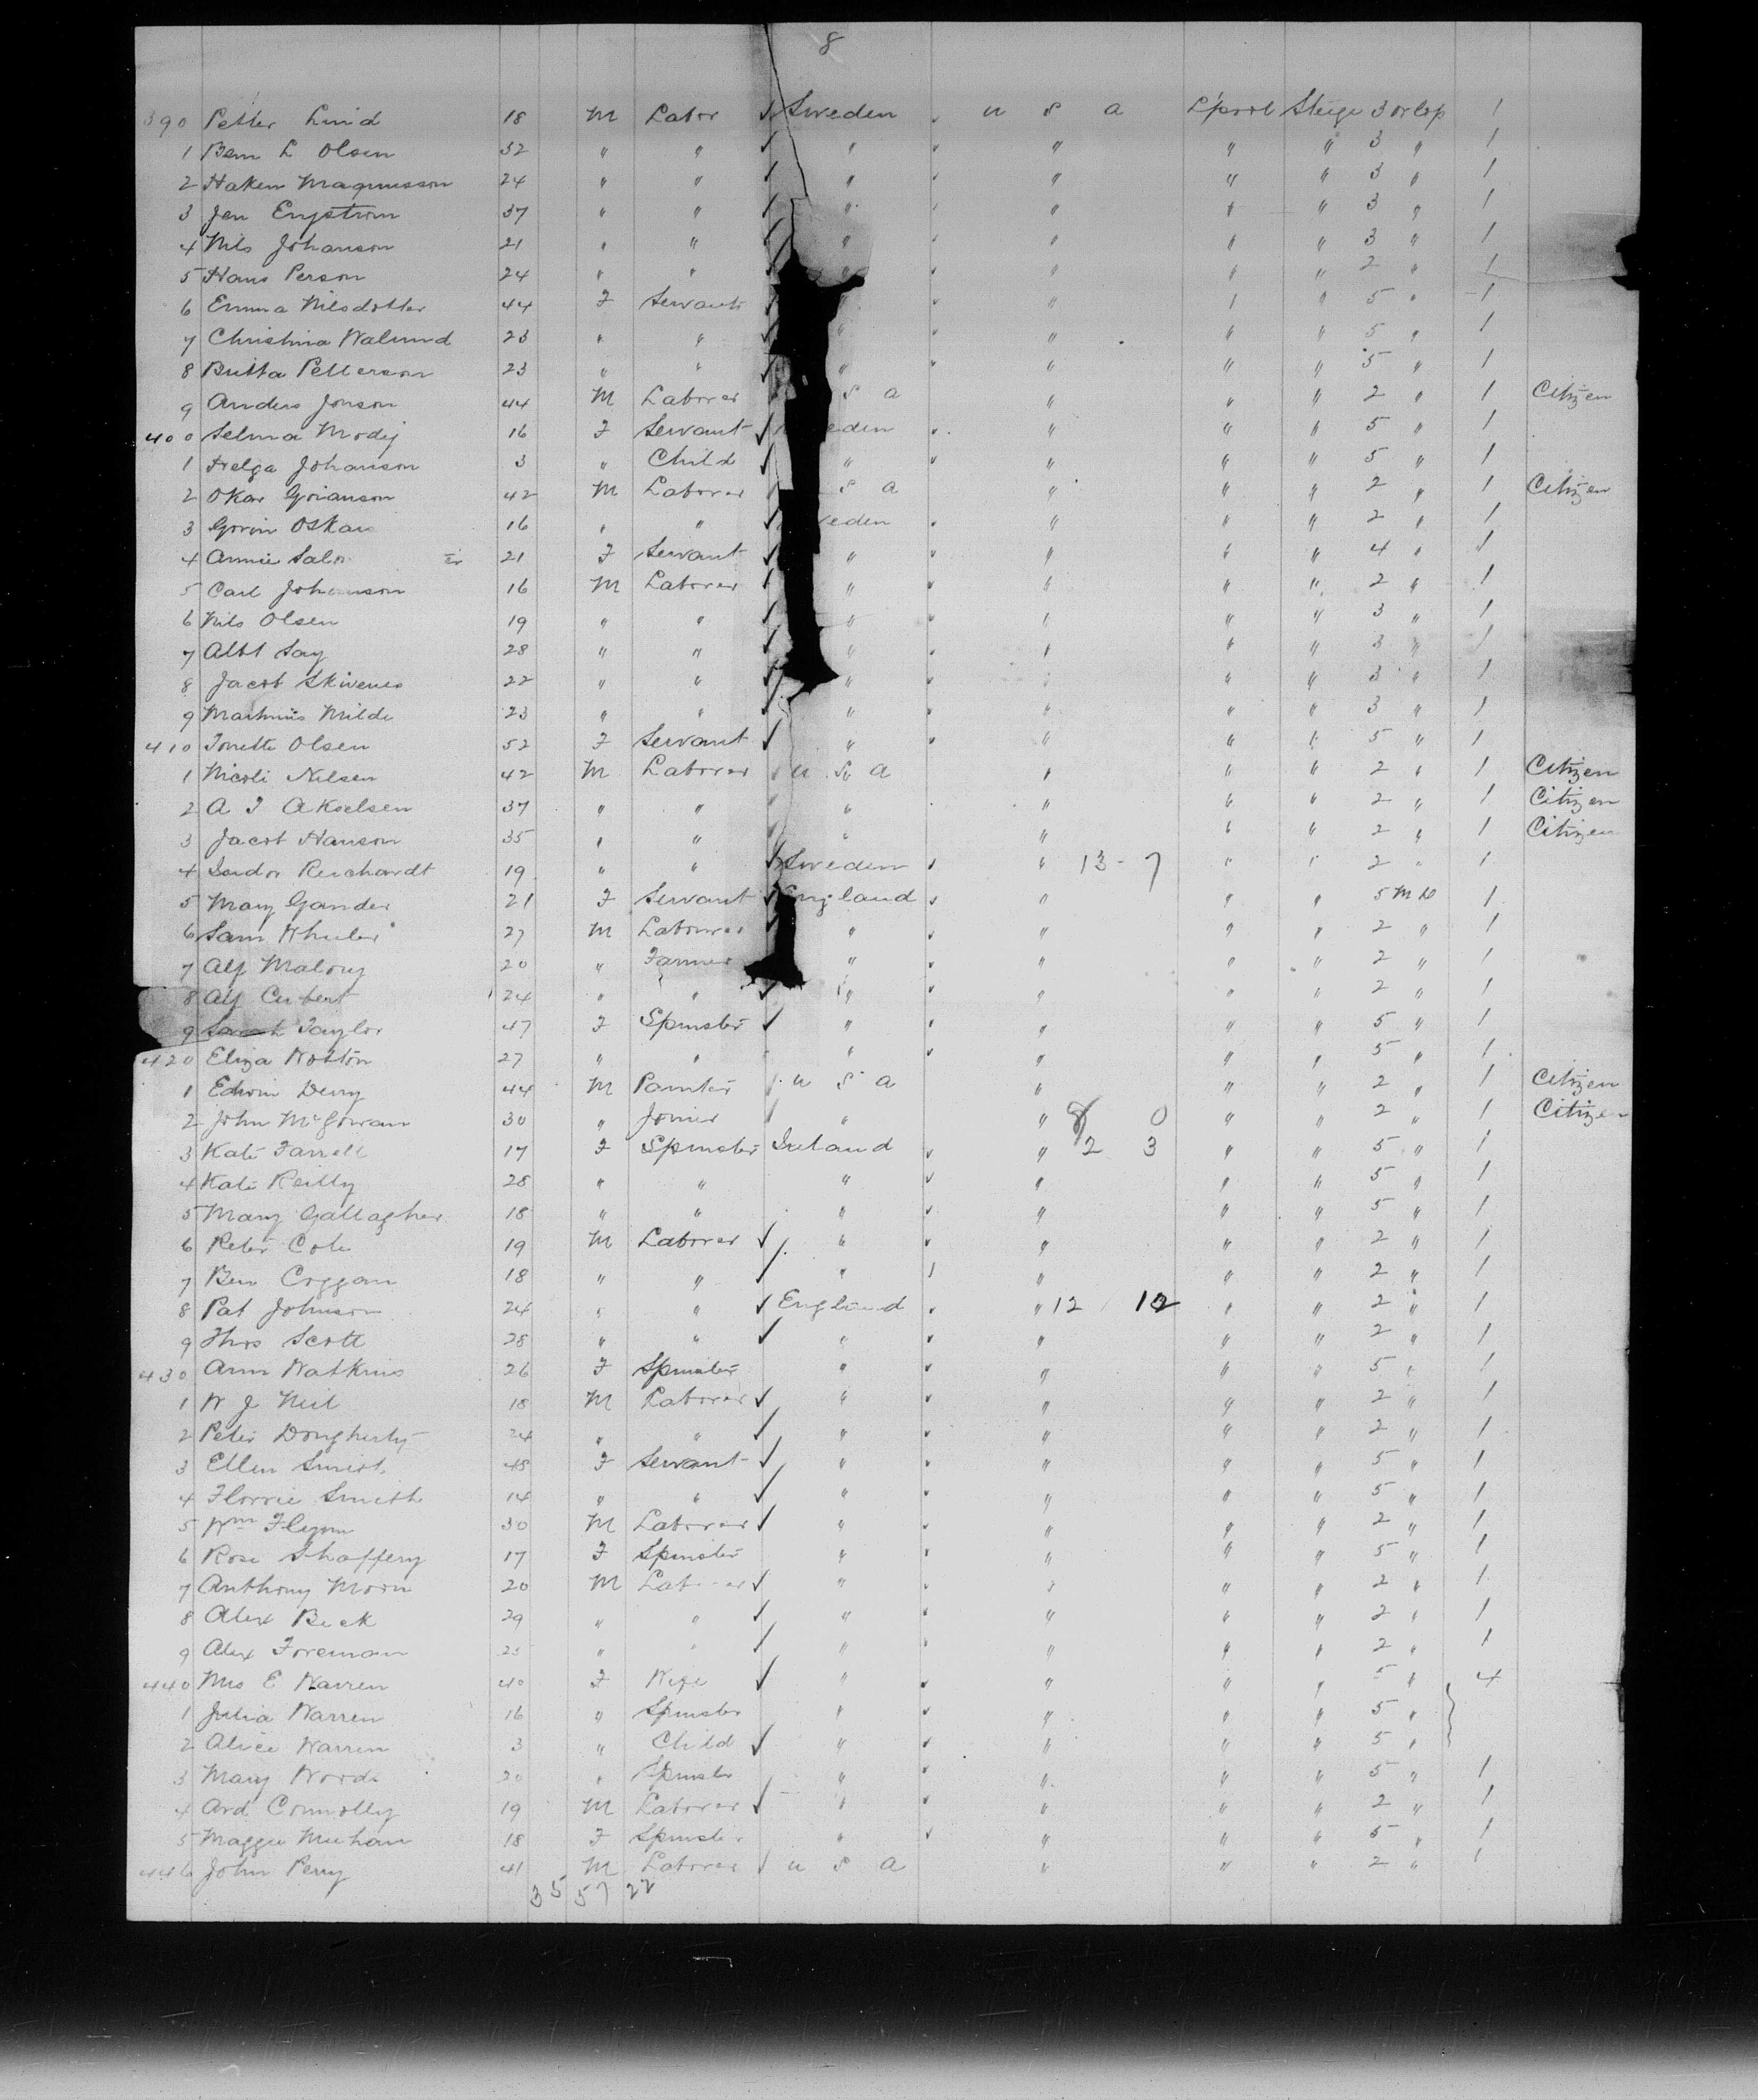 8
390 Petter Lind 18 M Labor ✓ Sweden u s a L'pool Steige 3 orlop 1
1 Bern L Olsen 32 " " ✓ " " " " 3 " 1
2 Haken Magnusson 24 " " ✓ " " " " 3 " 1
3 Jen Engstrom 37 " " ✓ " " " " 3 " 1
4 Nils Johanson 21 " " ✓ " " " " 3 " 1
5 Hans Person 24 " " " " " " 2 " 1
6 Emma Nilsdotter 44 F Servant " " " 5 " 1
7 Christina Walund 23 " " ✓ " " " " 5 " 1
8 Britta Petterson 23 " " ✓ " " " " 5 " 1
9 Anders Jonson 44 M Laborer s a " " " 2 " 1 Citizen
400 Selma Modig 16 F Servant ✓ eden " " " 5 " 1
1 Helga Johanson 3 " Child ✓ " " " " 5 " 1
2 Okar Goranson 42 M Laborer s a " " " 2 " 1 Citizen
3 Gorin Oskar 16 " " ✓ eden " " " 2 " 1
4 Annie 21 F Servant ✓ " " " " 4 " 1
5 Carl Johanson 16 M Laborer ✓ " " " " 2 " 1
6 Nils Olsen 19 " " " " " " 3 " 1
7 Albt Say 28 " " " " " " 3 " 1
8 Jacob Skivenes 22 " " ✓ " " " " 3 " 1
9 Milde 23 " " ✓ " " " " 3 " 1
410 Olsen 52 F Servant ✓ " " " " 5 " 1
1 Nicoli Nilsen 42 M Laborer u s a " " " 2 " 1 Citizen
2 A J Akselsen 37 " " " " " " 2 " 1 Citizen
3 Jacob Hanson 35 " " " " " " 2 " 1 Citizen
4 Isidor Reichardt 19 " " ✓ Sweden " 13 - 7 " " 2 " 1
5 Mary Gander 21 F Servant ✓ England " " " 5 1
6 Sam Whuler 27 M Labourer ✓ " " " " 2 " 1
7 Alf Malony 20 " Farmer " " " " 2 " 1
8 Alf Cubert 24 " " ✓ " " " " 2 " 1
9 Sarah Taylor 47 F Spinster ✓ " " " " 5 " 1
420 Eliza Wotton 27 " " " " " " 5 " 1
1 Edwin Derry 44 M Painter u s a " " " 2 " 1 Citizen
2 John McGowan 30 " Joiner " " 8 0 " " 2 " 1 Citizen
3 Kate Farrell 17 F Spinster Ireland " 2 3 " " 5 " 1
4 Kate Reilly 28 " " " " " " 5 " 1
5 Mary Gallagher 18 " " " " " " 5 " 1
6 Peter Cole 19 M Laborer ✓ " " " " 2 " 1
7 Ben Coggan 18 " " ✓ " " " " 2 " 1
8 Pat Johnson 24 " " ✓ England " 12 / 12 " " 2 " 1
9 Thos Scott 28 " " ✓ " " " " 2 " 1
430 Ann Watkins 26 F Spinster " " " " 5 " 1
1 W J Neil 18 M Laborer ✓ " " " " 2 " 1
2 Peter Dougherty 24 " " ✓ " " " " 2 " 1
3 Ellen Smith 48 F Servant ✓ " " " " 5 " 1
4 Florrie Smith 14 " " ✓ " " " " 5 " 1
5 Wm Flynn 30 M Laborer ✓ " " " " 2 " 1
6 Rose Shaffery 17 F Spinster " " " " 5 " 1
7 Anthony Moon 20 M Laborer ✓ " " " " 2 " 1
8 Alex Beck 29 " " ✓ " " " " 2 " 1
9 Alex Foreman 25 " " ✓ " " " " 2 " 1
440 Mrs E Warren 40 F Wife ✓ " " " " 5 " 4
1 Julia Warren 16 " Spinster " " " " 5 "
2 Alice Warren 3 " Child ✓ " " " " 5 "
3 Mary Woods 20 " Spinster " " " " 5 " 1
4 Ard Connolly 19 M Laborer ✓ " " " " 2 " 1
5 Maggie Meehan 18 F Spinster " " " " 5 " 1
446 John Perry 41 M Laborer u s a " " " 2 " 1
35 57 22